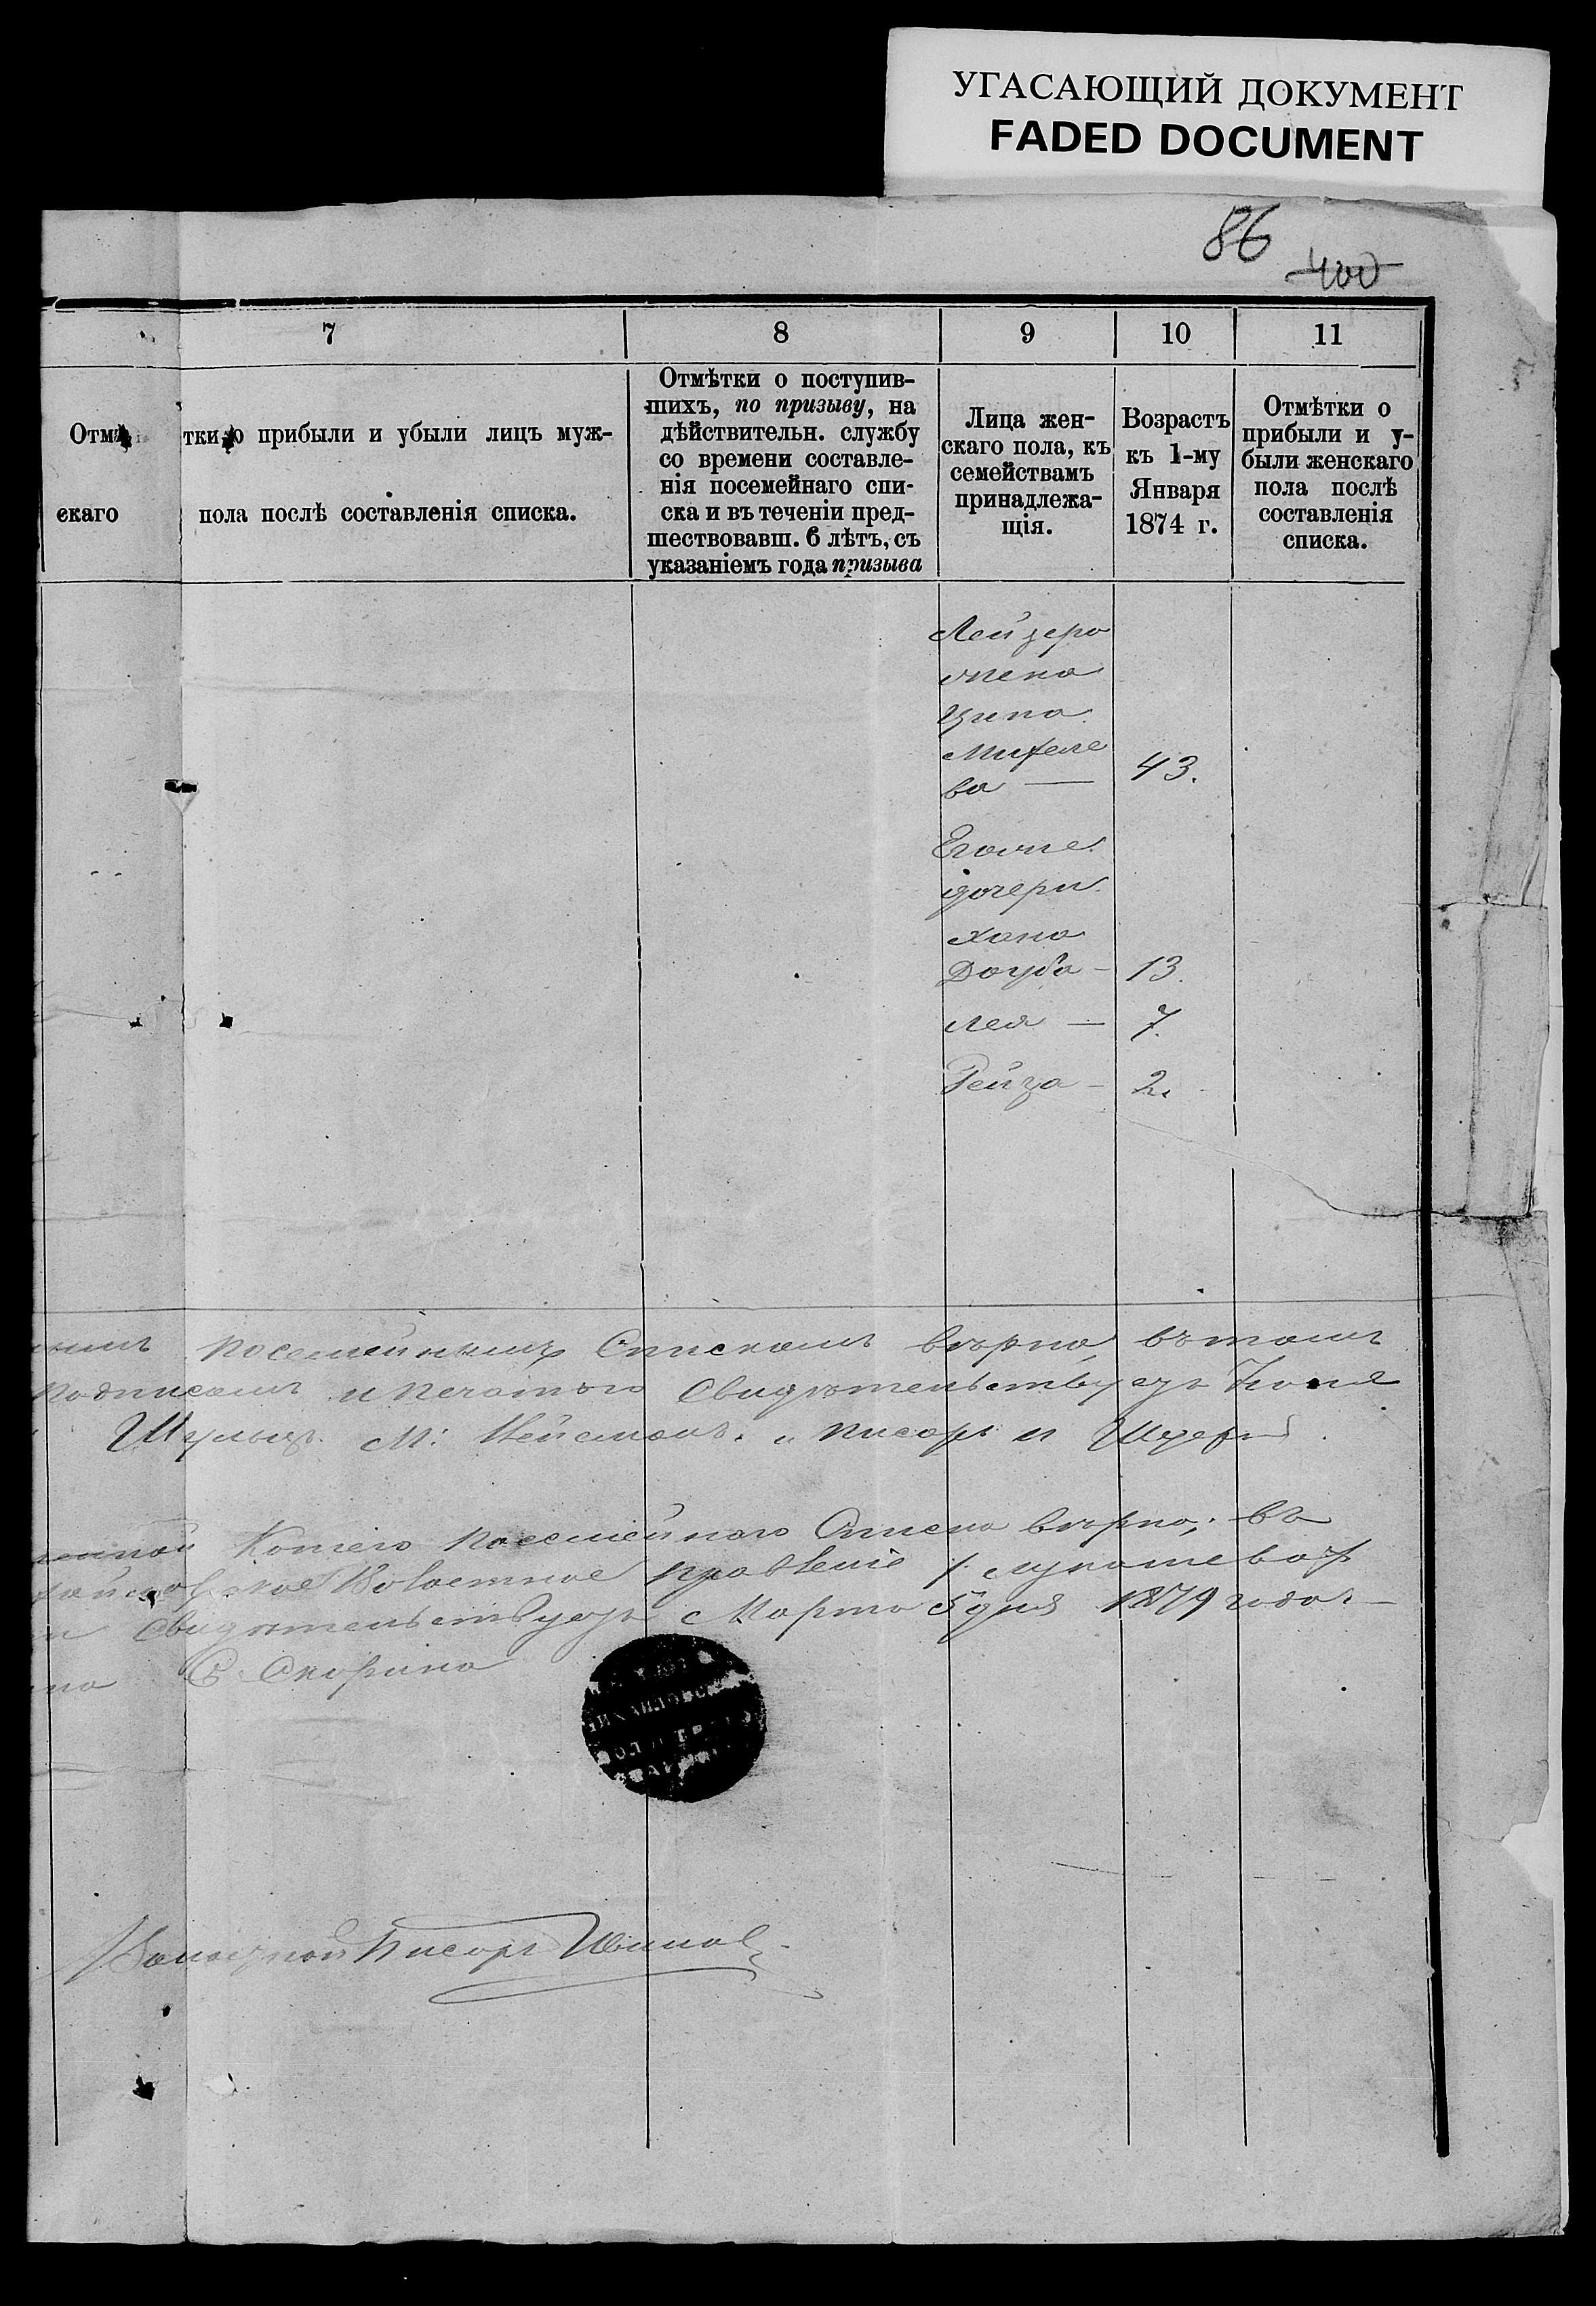 УГАСАЮЩИЙ ДОКУМЕНТ
FADED DOCUMENT
86
400
7
8
9
10
11
тки о прибыли и убыли лицъ муж-
скаго
пола послѣ составленія списка.
Отмѣтки о поступив-
шихъ, по призыву, на
дѣйствительн. службу
со времени составле-
нія посемейнаго спи-
ска и въ теченіи пред-
шествовавш. 6 лѣтъ, съ
указаніемъ года призыва
Лица жен-
скаго пола, къ
семействамъ
принадлежа-
щія.
Возрастъ
къ 1-му
Января
1874 г.
Отмѣтки о
прибыли и у-
были женскаго
пола послѣ
составленія
списка.
Лейзера
жена
Ципа
Михеле
ва — 43.
Его же
дочери
Хана
Доуба — 13.
Лея — 7.
Рейза — 2.
посемейнымъ Спискамъ вѣрна, въ томъ
подписомъ и печатью Свидѣтельствуетъ
Шульцъ М: и писарь
Копіею посемейнаго Списка вѣрна, въ
Волостное правленіе
Свидѣтельствуетъ Марта 5 дня 1879 года
С. Скорина
Волостной Писарь